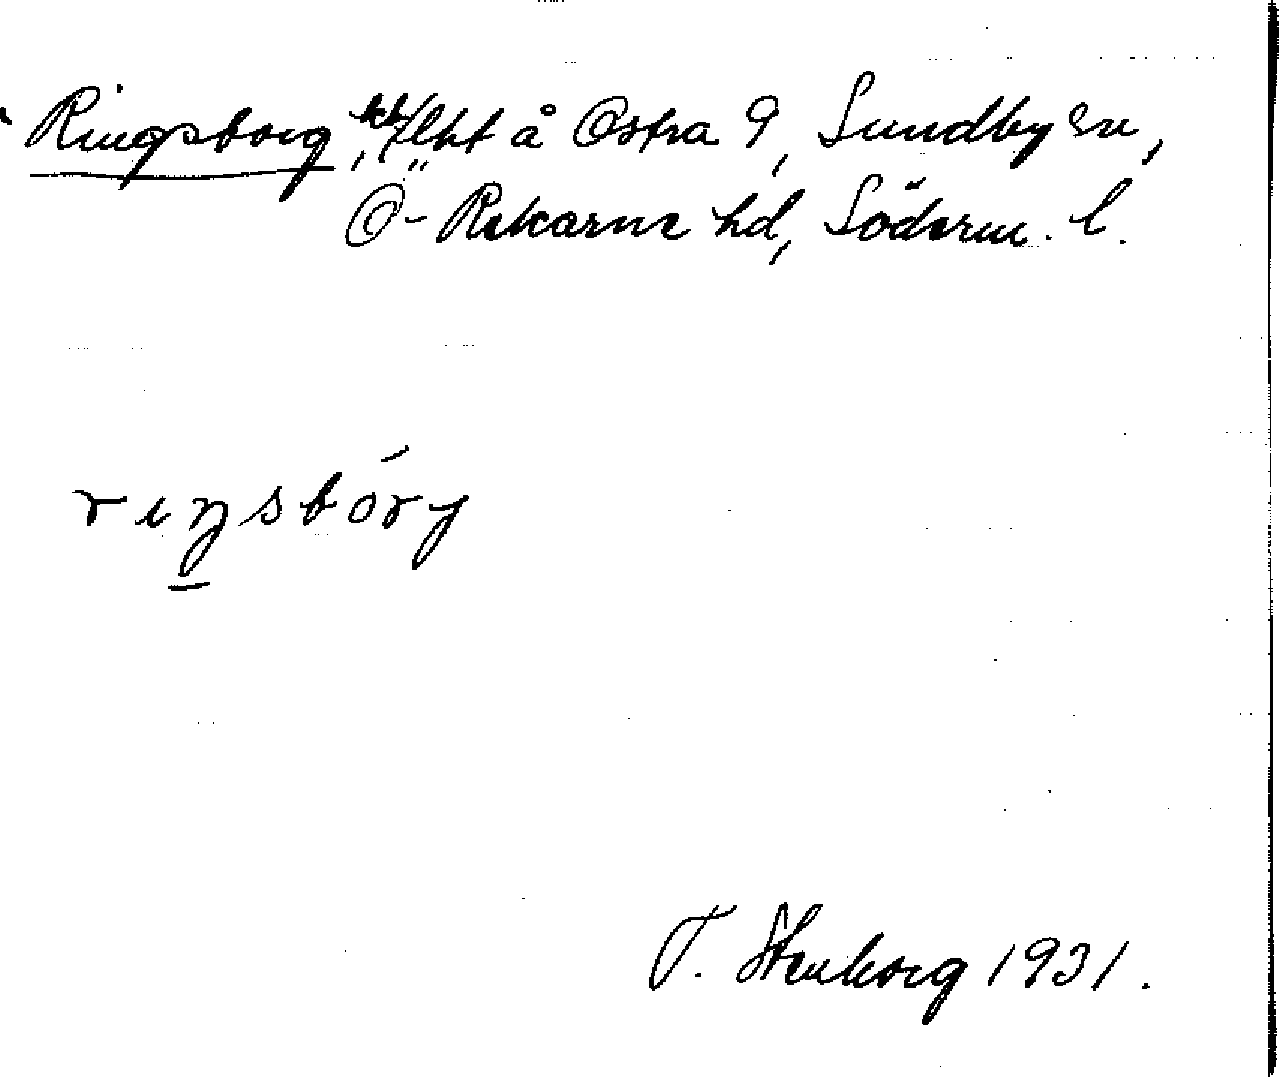 Ringsborg, lht å Östra 9, Sundby sn,
Ö-Rekarne hd, Söderm. l.
rıŋsbórj
T. Stenborg 1931.